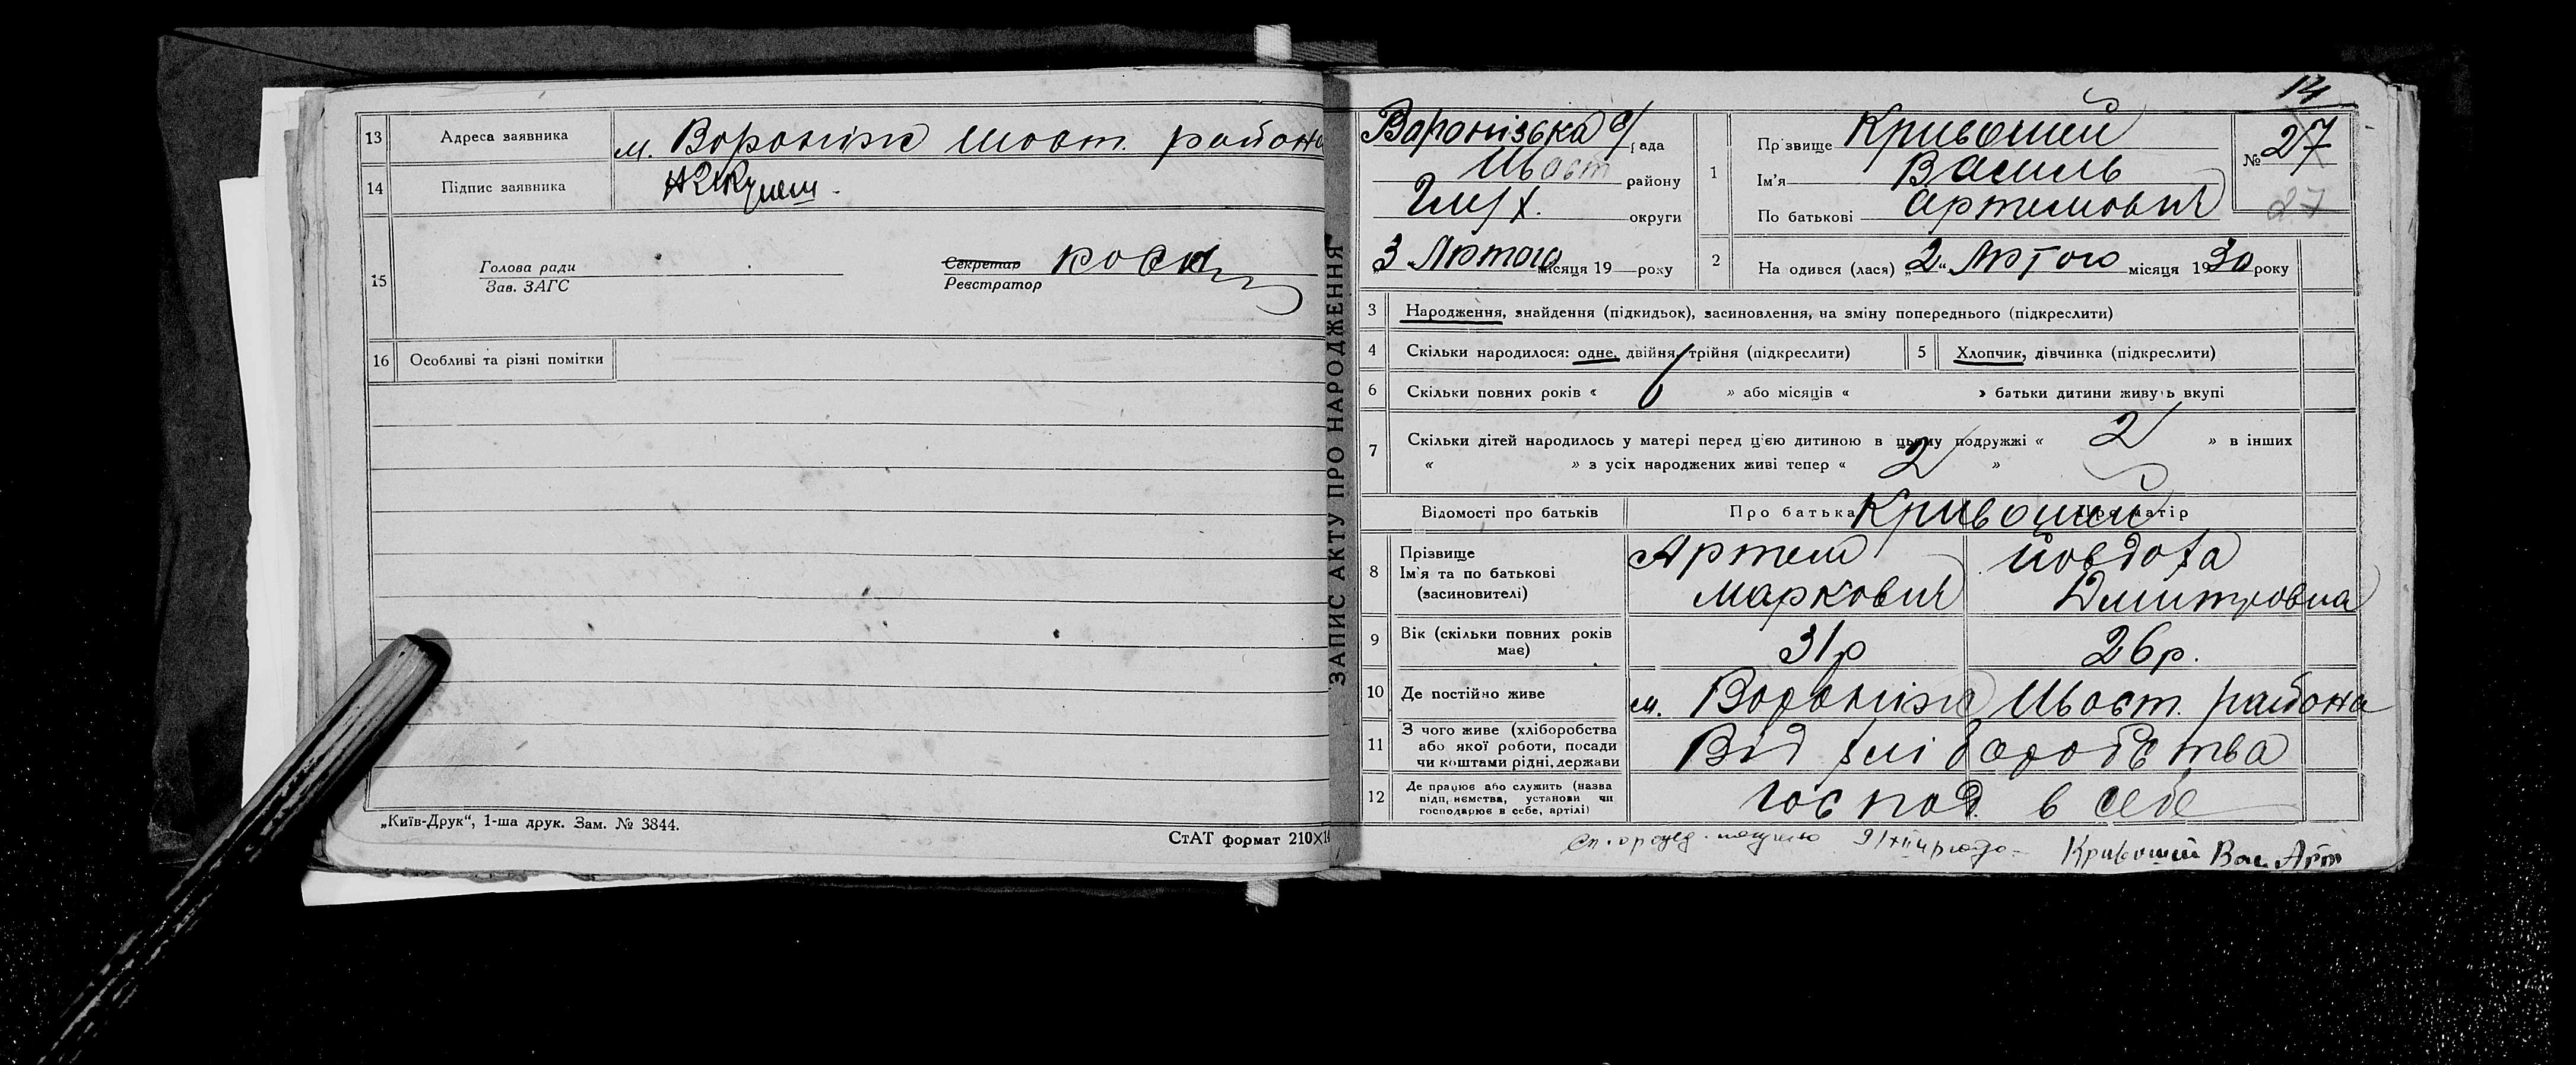 13 Адреса заявника м. Вороніж Шост. района
14 Підпис заявника
15 Голова ради
Зав. ЗАГС
Секретар
Реєстратор
16 Особливі та різні помітки
„Київ-Друк“, 1-ша друк. Зам. № 3844.
СтАТ формат 210×14
ЗАПИС АКТУ ПРО НАРОДЖЕННЯ
14
Воронізька с/рада
Шост району
Глух. округи
3 Лютого місяця 19 року
1 Прізвище Кривошей
Ім'я Василь
По батькові Артемович
№ 27
27
2 На одився (лася) „2“ Лютого місяця 1930 року
3 Народження, знайдення (підкидьок), засиновлення, на зміну попереднього (підкреслити)
4 Скільки народилося: одне, двійня, трійня (підкреслити)
5 Хлопчик, дівчинка (підкреслити)
6 Скільки повних років « 6 » або місяців « » батьки дитини живуть вкупі
7 Скільки дітей народилось у матері перед цією дитиною в цьому подружжі « 2 » в інших
« » з усіх народжених живі тепер « 2 »
Відомості про батьків Про батька Про матір
Кривошей
8 Прізвище
Ім'я та по батькові
(засиновителі)
Артем Йовдоха
Маркович Дмитровна
9 Вік (скільки повних років має) 31р 26р.
10 Де постійно живе м. Вороніж Шост. района
11 З чого живе (хліборобства
або якої роботи, посади
чи коштами рідні, держави
Від хліборобства
12 Де працює або служить (назва
підприємства, установи чи
господарює в себе, артілі)
Господ. в себе
Кривошей Вас Арт